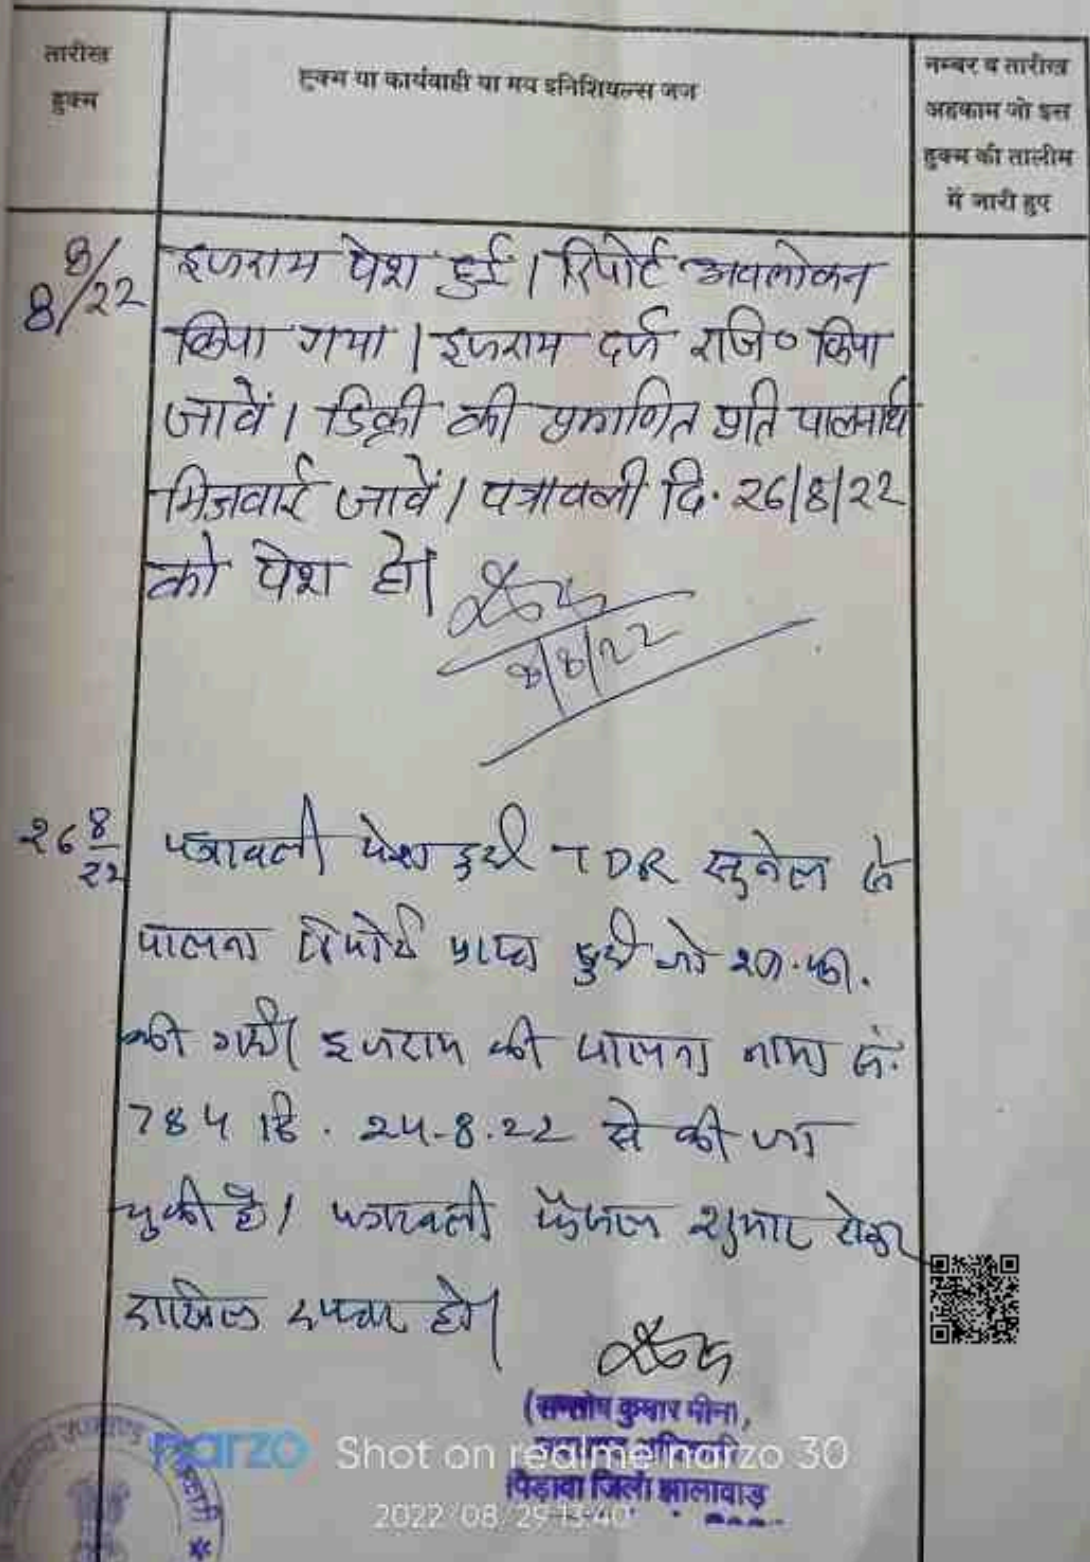 तारीख
हुक्म
हुक्म या कार्यवाही या मय इनिशियल्स जज
नम्बर व तारीख
अहकाम जो इस
हुक्म की तालीम
में जारी हुए
8/8/22
इजराय पेश हुई। रिपोर्ट अवलोकन
किया गया। इजराय दर्ज रजि० किया
जावें। डिक्री की प्रमाणित प्रति पालनार्थ
भिजवाई जावें। पत्रावली दि. 26/8/22
को पेश हो।
8/8/22
26 8/22
पत्रावली पेश हुयी TDR सुनेल से
पालना रिपोर्ट प्राप्त हुयी जो शा.फा.
की गयी। इजराय की पालना नामा सं.
784 दि. 24-8-22 से की जा
चुकी है। पत्रावली फैसल शुमार होकर
दाखिल दफ्तर हो।
(सन्तोष कुमार मीना)
उपखण्ड अधिकारी
पिड़ावा जिला झालावाड़
narzo Shot on realme narzo 30
2022/08/29 13:40